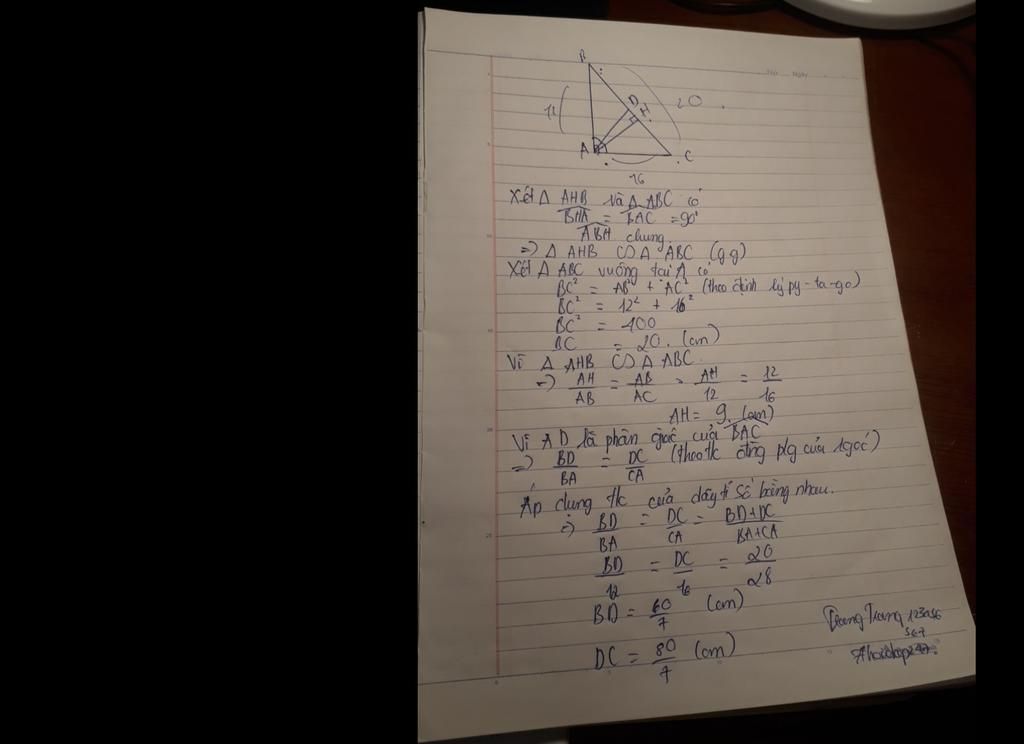 B
12
D
H
20
A
C
16
Xét Δ AHB và Δ ABC có
BHA = BAC = 90°
ABH chung
=> Δ AHB ∽ Δ ABC (gg)
Xét Δ ABC vuông tại A có
BC² = AB² + AC² (theo định lý py-ta-go)
BC² = 12² + 16²
BC² = 400
BC = 20 (cm)
Vì Δ AHB ∽ Δ ABC
=> AH/AB = AB/AC = AH/12 = 12/16
AH = 9 (cm)
Vì AD là phân giác của BAC
=> BD/BA = DC/CA (theo tc đường plg của 1 góc)
Áp dụng tc của dãy tỉ số bằng nhau.
=> BD/BA = DC/CA = BD+DC/BA+CA
BD/12 = DC/16 = 20/28
BD = 60/7 (cm)
DC = 80/7 (cm)